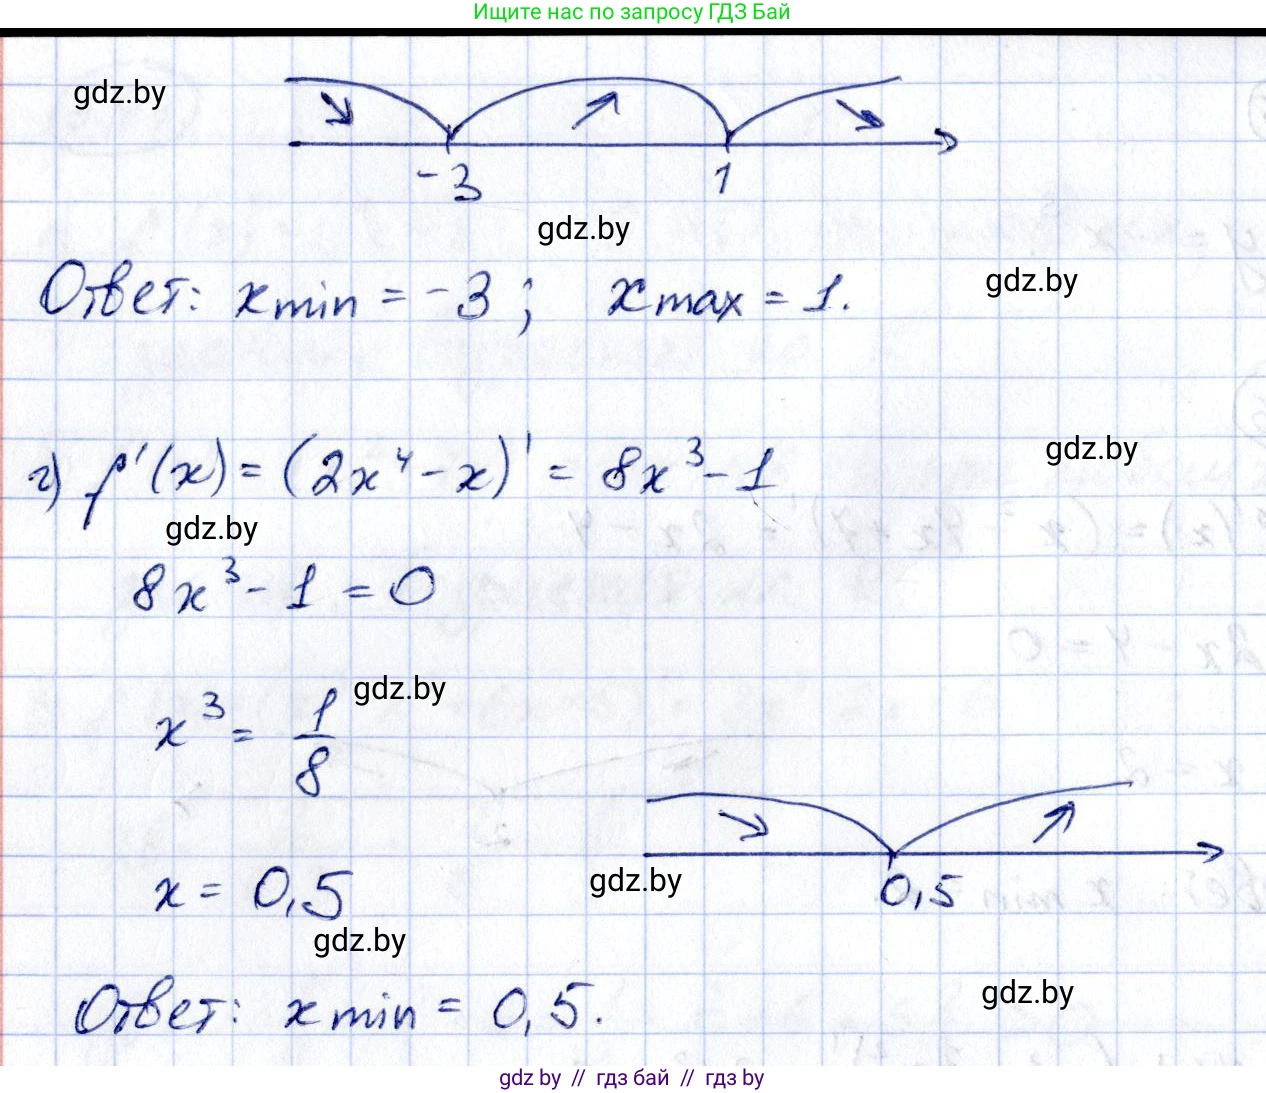 Ищите нас по запросу ГДЗ Бай
gdz.by
-3 1
gdz.by
gdz.by
Ответ: x min = -3 ; x max = 1.
gdz.by
г) f'(x) = (2x⁴ - x)' = 8x³ - 1
gdz.by
8x³ - 1 = 0
gdz.by
x³ = 1/8
gdz.by
x = 0,5
0,5
gdz.by
gdz.by
Ответ: x min = 0,5.
gdz by // гдз бай // гдз by